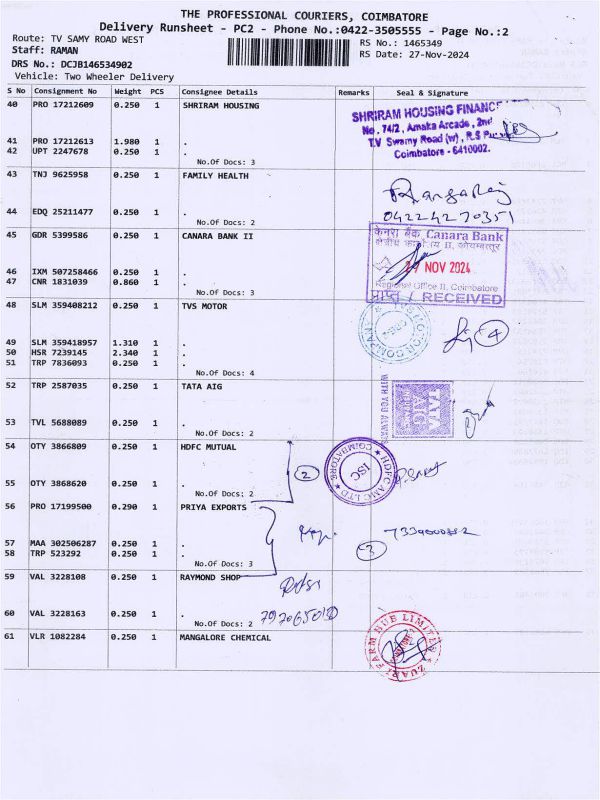 THE PROFESSIONAL COURIERS, COIMBATORE
Delivery Runsheet - PC2 - Phone No.:0422-3505555 - Page No.:2
Route: TV SAMY ROAD WEST
Staff: RAMAN
DRS No.: DCJB146534902
Vehicle: Two Wheeler Delivery
RS No.: 1465349
RS Date: 27-Nov-2024
S No Consignment No Weight PCS Consignee Details Remarks Seal & Signature
40 PRO 17212609 0.250 1 SHRIRAM HOUSING
SHRIRAM HOUSING FINANCE
No, 74/2, Amaka Arcade, 2nd
T.V Swamy Road (w), R.S
Coimbatore - 6410002.
41 PRO 17212613 1.980 1 .
42 UPT 2247678 0.250 1 .
No.Of Docs: 3
43 TNJ 9625958 0.250 1 FAMILY HEALTH
04224270351
44 EDQ 25211477 0.250 1 .
No.Of Docs: 2
45 GDR 5399586 0.250 1 CANARA BANK II
केनरा बैंक Canara Bank
NOV 2024
Regional Office II, Coimbatore
प्राप्त / RECEIVED
46 IXM 507258466 0.250 1 .
47 CNR 1831039 0.860 1 .
No.Of Docs: 3
48 SLM 359408212 0.250 1 TVS MOTOR
4
49 SLM 359418957 1.310 1 .
50 HSR 7239145 2.340 1 .
51 TRP 7836093 0.250 1 .
No.Of Docs: 4
52 TRP 2587035 0.250 1 TATA AIG
WITH YOU ALWAYS
TATA
AIG
53 TVL 5688089 0.250 1 .
No.Of Docs: 2
54 OTY 3866809 0.250 1 HDFC MUTUAL
2
HDFC AMC LTD
COIMBATORE
ISC
55 OTY 3868620 0.250 1 .
No.Of Docs: 2
56 PRO 17199500 0.290 1 PRIYA EXPORTS
3
57 MAA 302506287 0.250 1 .
58 TRP 523292 0.250 1 .
No.Of Docs: 3
59 VAL 3228108 0.250 1 RAYMOND SHOP
60 VAL 3228163 0.250 1 .
No.Of Docs: 2
61 VLR 1082284 0.250 1 MANGALORE CHEMICAL
ZUARI FARM HUB LIMITED